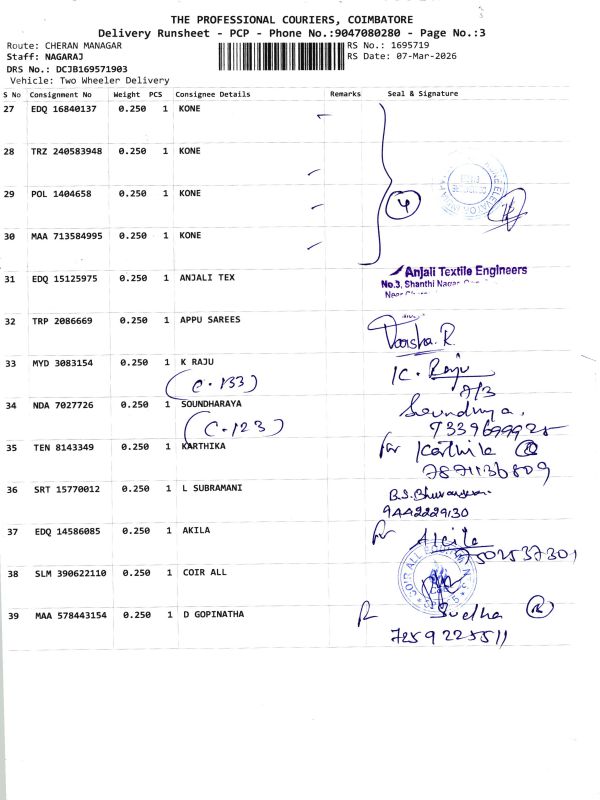 THE PROFESSIONAL COURIERS, COIMBATORE
Delivery Runsheet - PCP - Phone No.:9047080280 - Page No.:3
Route: CHERAN MANAGAR RS No.: 1695719
Staff: NAGARAJ RS Date: 07-Mar-2026
DRS No.: DCJB169571903
Vehicle: Two Wheeler Delivery
S No Consignment No Weight PCS Consignee Details Remarks Seal & Signature
27 EDQ 16840137 0.250 1 KONE
28 TRZ 240583948 0.250 1 KONE
29 POL 1404658 0.250 1 KONE
4
30 MAA 713584995 0.250 1 KONE
31 EDQ 15125975 0.250 1 ANJALI TEX Anjali Textile Engineers
No.3, Shanthi Nagar
32 TRP 2086669 0.250 1 APPU SAREES
Varsha. R.
33 MYD 3083154 0.250 1 K RAJU K. Raju
(C.133)
34 NDA 7027726 0.250 1 SOUNDHARAYA
(C.123) 7339699925
35 TEN 8143349 0.250 1 KARTHIKA for Karthika
7871136809
36 SRT 15770012 0.250 1 L SUBRAMANI
9442229130
37 EDQ 14586085 0.250 1 AKILA for Akila
7502537301
38 SLM 390622110 0.250 1 COIR ALL
39 MAA 578443154 0.250 1 D GOPINATHA Sudha
7259225511